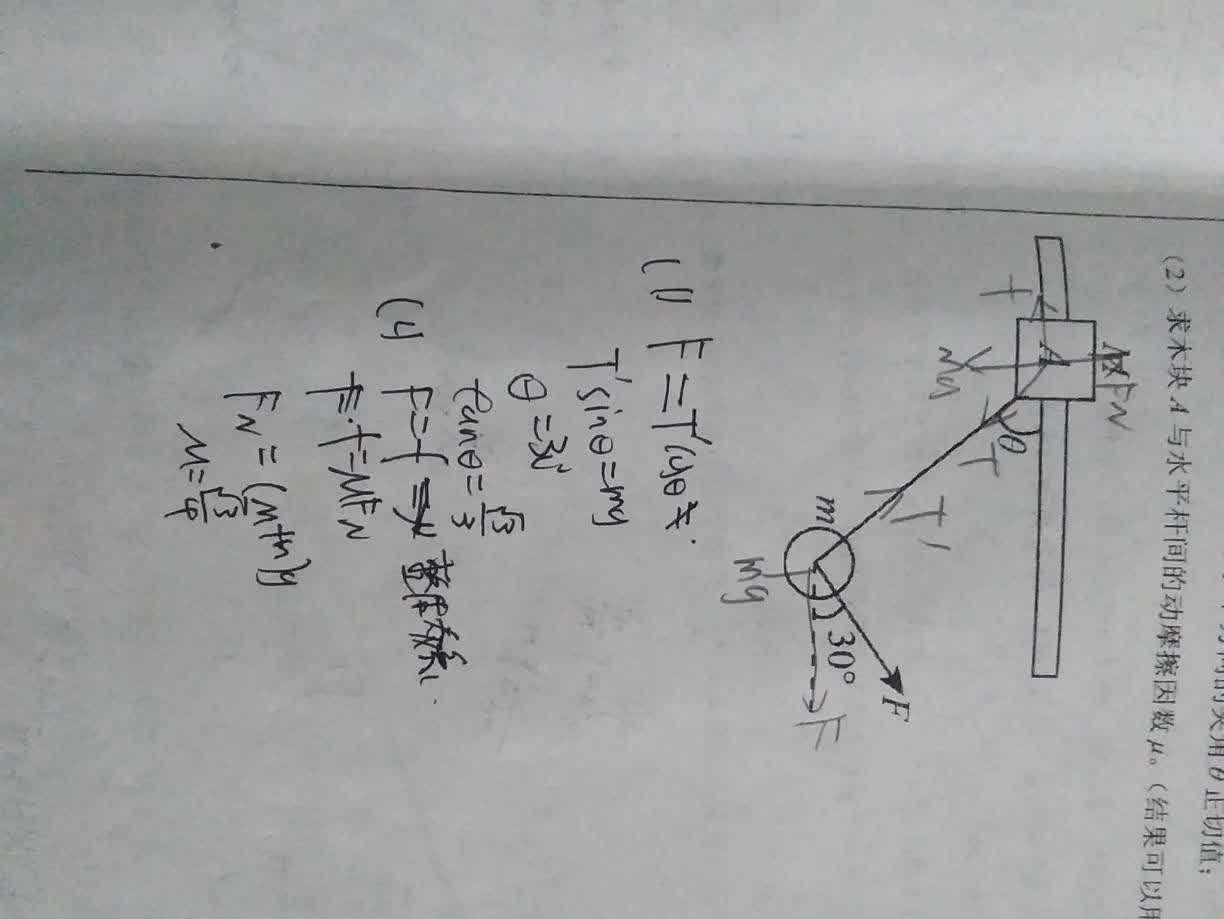 角 θ 正切值；
（2）求木块 A 与水平杆间的动摩擦因数 μ。（结果可以用
FN
A
f
Mg
θ
T
T'
m
mg
30°
F
F
(1) F = T'cosθ
T'sinθ = mg
θ = 30°
tanθ = √3/3
F = f 整体
f = μFN
FN = (M+m)g